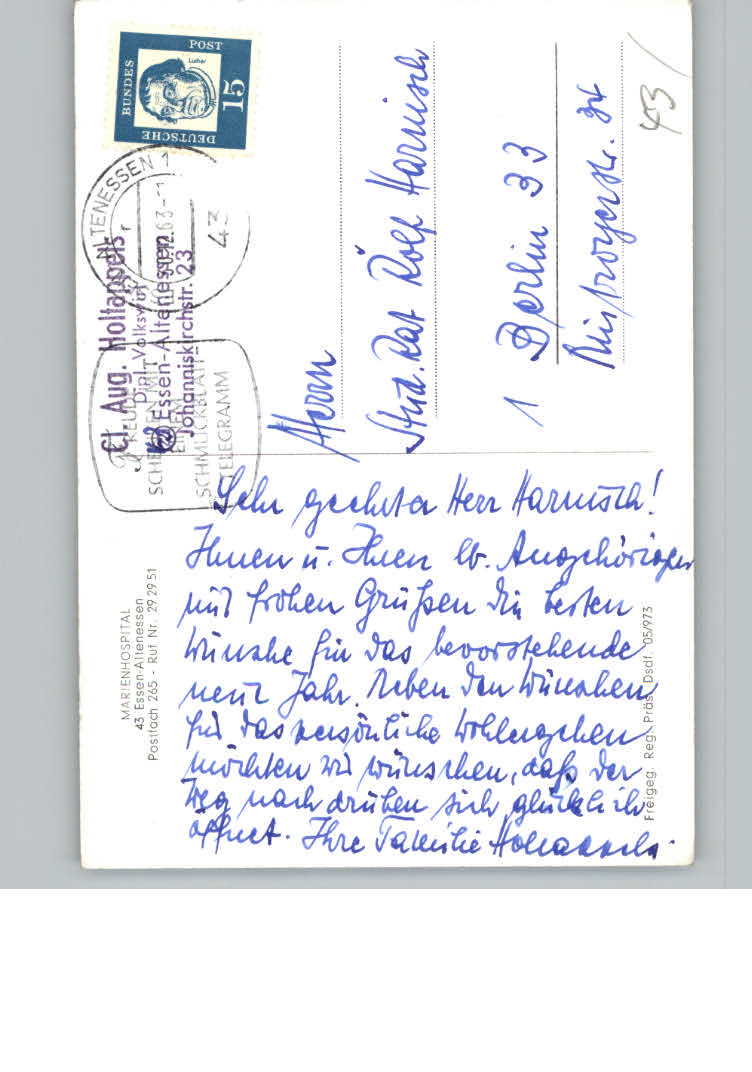 MARIENHOSPITAL
43 Essen-Altenessen
Postfach 265 - Ruf Nr. 29 29 51
Sehr geehrter Herr Harnisch!
Ihnen u. Ihren lb. Angehörigen
mit frohen Grüßen die besten
Wünsche für das bevorstehende
neue Jahr. Neben den Wünschen
für das persönliche Wohlergehen
möchten wir wünschen, daß der
Weg nach drüben sich glücklich
öffnet. Ihre Familie Holtappels.
Freigeg. Reg. Präs. Dsdf. 05/973
DEUTSCHE
BUNDES
POST
15
Luther
ALTENESSEN 1
43
Cl. Aug. Holtappels
Dipl. Volkswirt
Essen-Altenessen
Johanniskirchstr. 23
SCHMUCKBLATT-
TELEGRAMM
Herrn
Stud. Rat Rolf Harnisch
1 Berlin 33
34
43/